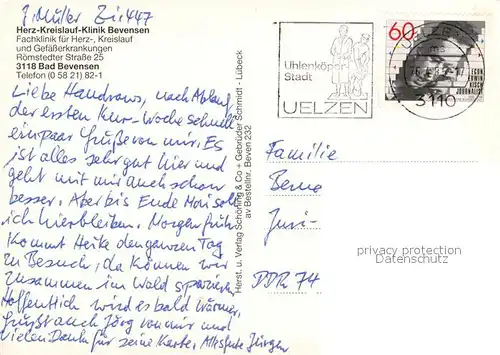 J. Müller Zi. 447
Herz-Kreislauf-Klinik Bevensen
Fachklinik für Herz-, Kreislauf
und Gefäßerkrankungen
Römstedter Straße 25
3118 Bad Bevensen
Telefon (0 58 21) 82-1
Liebe nach Ablauf
der ersten Kur-Woche schnell
ein paar Grüße von mir. Es
ist alles sehr gut hier und
geht mir auch schon
besser. Aber bis Ende Mai soll
ich hierbleiben. Morgen früh
kommt Heike den ganzen Tag
zu Besuch, da können wir
zusammen im Wald spazieren.
Hoffentlich wird es bald wärmer.
Grüßt auch Jörg von mir und
vielen Dank für seine Karte. Alles Gute Jürgen
Herst. u. Verlag Schöning & Co + Gebrüder Schmidt - Lübeck
av Bestellnr. Beven 232
Uhlenköper-
Stadt
UELZEN
60
UELZEN
3110
EGON
ERWIN
KISCH
JOURNALIST
Familie
DDR 74
privacy protection
Datenschutz